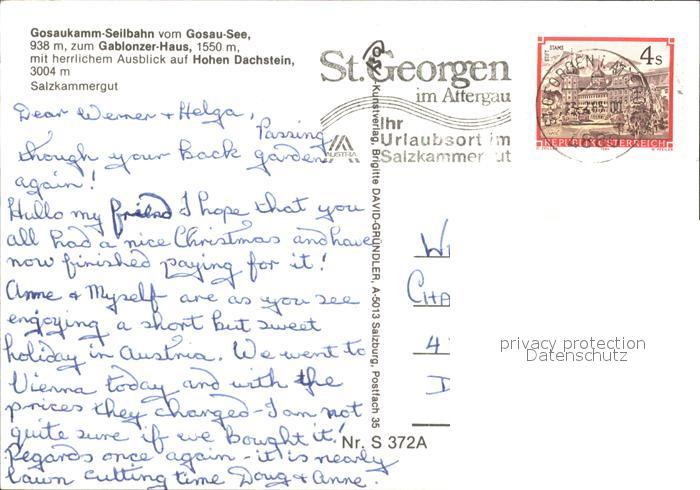 Gosaukamm-Seilbahn vom Gosau-See,
938 m, zum Gablonzer-Haus, 1550 m,
mit herrlichem Ausblick auf Hohen Dachstein,
3004 m
Salzkammergut
Dear Werner + Helga,
Passing
though your back garden
again!
Hullo my friend I hope that you
all had a nice Christmas and have
now finished paying for it!
Anne & Myself are as you see
engoying a short but sweet
holiday in Austria. We went to
Vienna today and with the
prices they charged - I am not
quite sure if we bought it!
Regards once again - it is nearly
lawn cutting time Doug & Anne.
St. Georgen
im Attergau
Ihr
Urlaubsort im
Salzkammer ut
AUSTRIA
4 S
STIFT STAMS
REPUBLIK ÖSTERREICH
Kunstverlag, Brigitte DAVID-GRÜNDLER, A-5013 Salzburg, Postfach 35
Nr. S 372A
W
CHA
4
privacy protection
Datenschutz